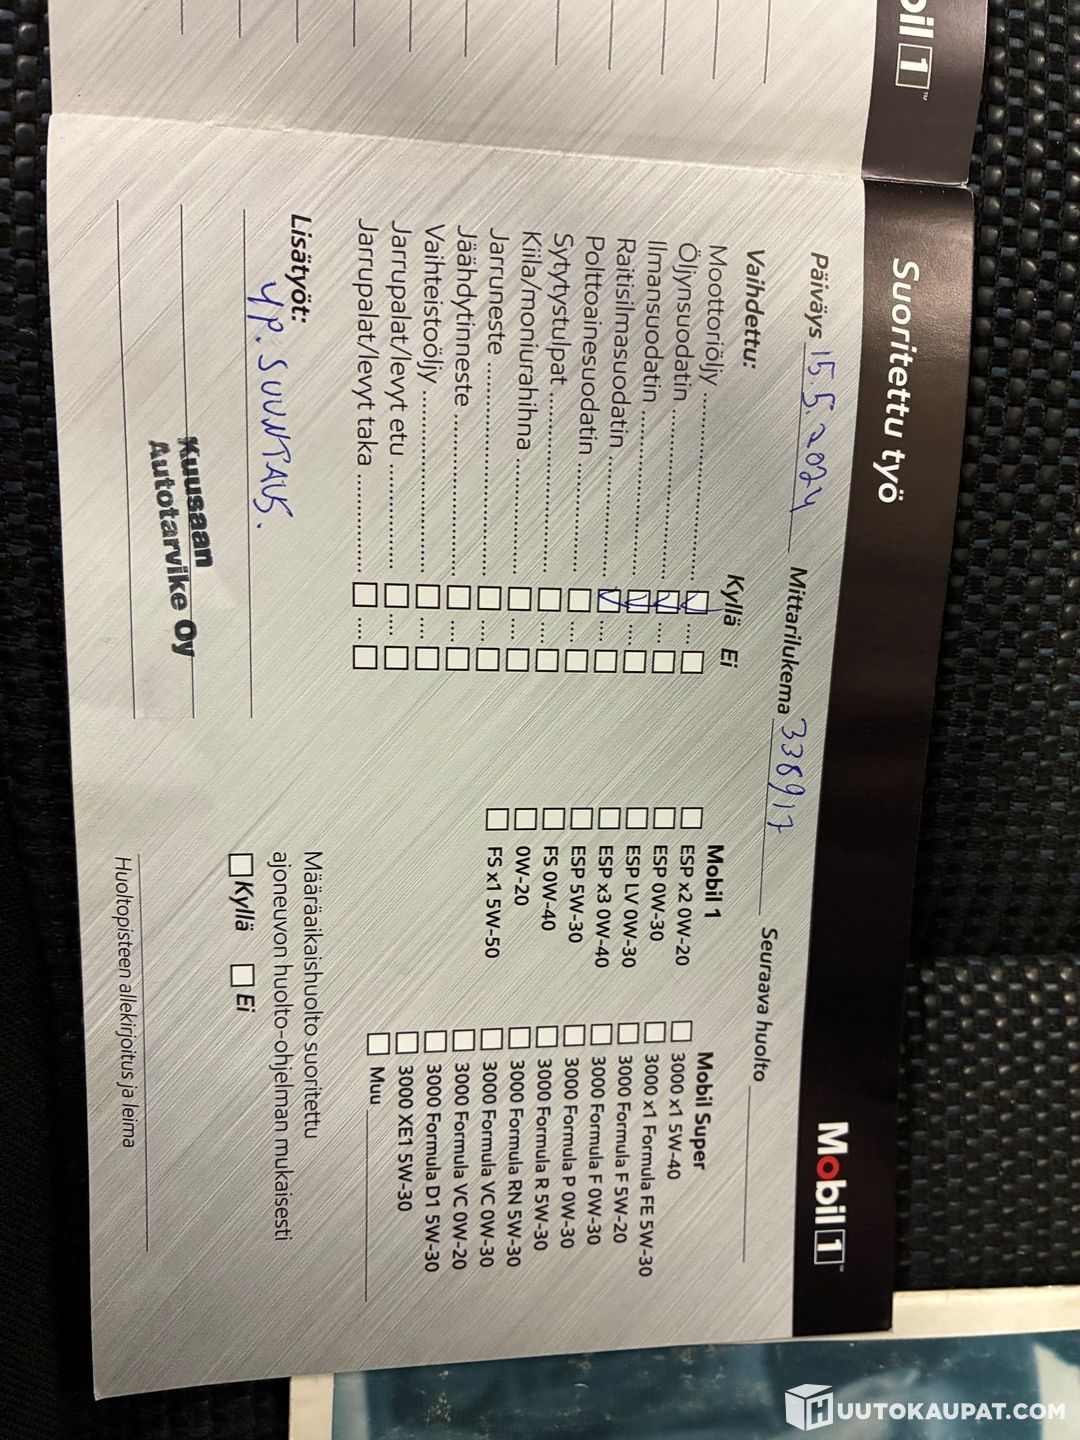 bil 1™
Suoritettu työ
Mobil 1™
Päiväys 15.5.2024 Mittarilukema 338917 Seuraava huolto
Vaihdettu: Kyllä Ei
Moottoriöljy
Öljynsuodatin
Ilmansuodatin
Raitisilmasuodatin
Polttoainesuodatin
Sytytystulpat
Kiila/moniurahihna
Jarruneste
Jäähdytinneste
Vaihteistoöljy
Jarrupalat/levyt etu
Jarrupalat/levyt taka
Mobil 1
ESP x2 0W-20
ESP 0W-30
ESP LV 0W-30
ESP x3 0W-40
ESP 5W-30
FS 0W-40
0W-20
FS x1 5W-50
Mobil Super
3000 x1 5W-40
3000 x1 Formula FE 5W-30
3000 Formula F 5W-20
3000 Formula F 0W-30
3000 Formula P 0W-30
3000 Formula R 5W-30
3000 Formula RN 5W-30
3000 Formula VC 0W-30
3000 Formula VC 0W-20
3000 Formula D1 5W-30
3000 XE1 5W-30
Muu
Lisätyöt:
4P. SUUNTAUS.
Kuusaan
Autotarvike Oy
Määräaikaishuolto suoritettu
ajoneuvon huolto-ohjelman mukaisesti
Kyllä Ei
Huoltopisteen allekirjoitus ja leima
HUUTOKAUPAT.COM